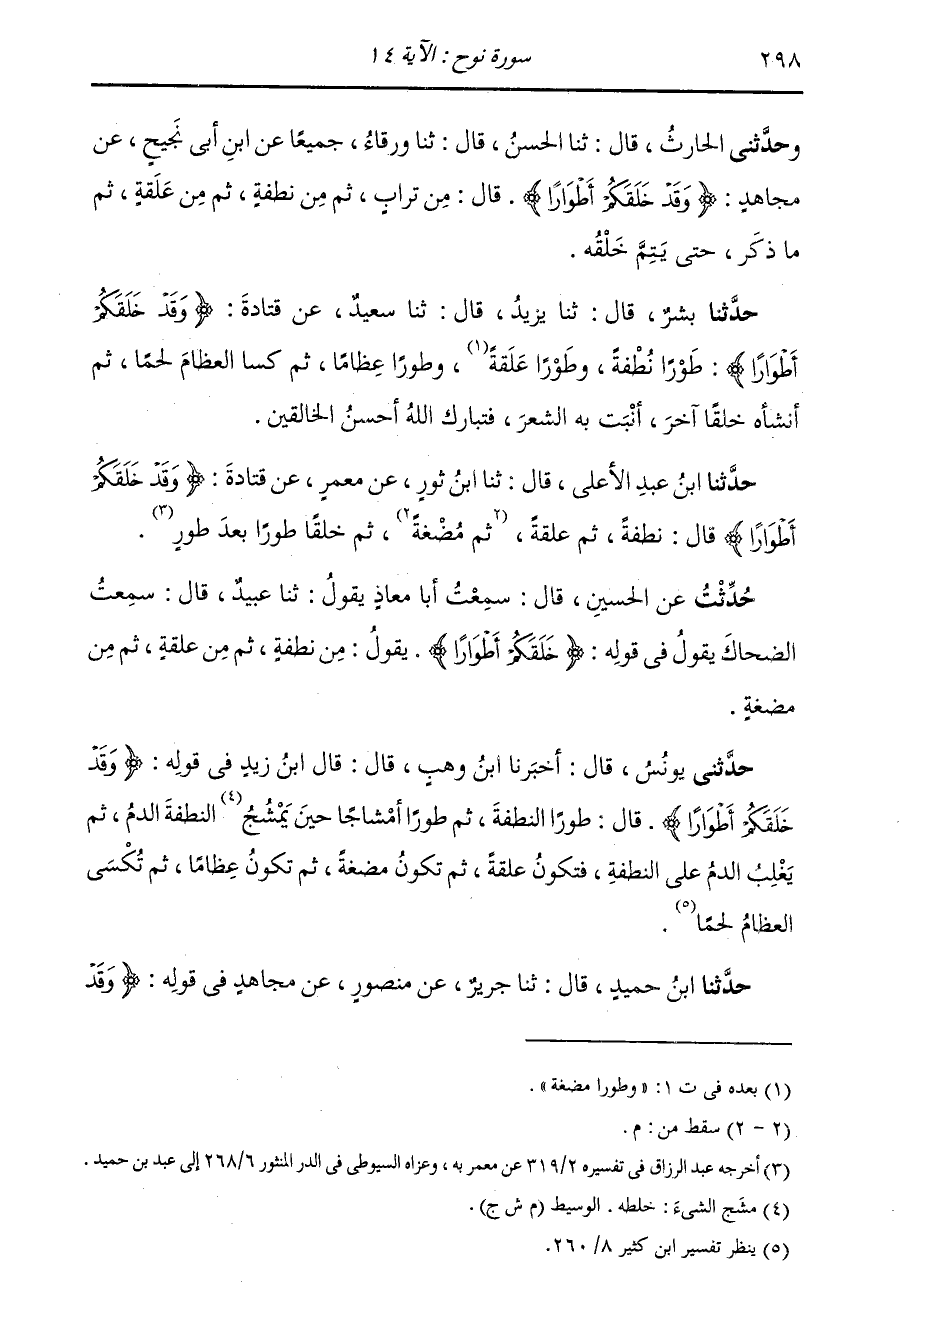 ٢٩٨
سورة نوح : الآية ١٤
وحدَّثنى الحارثُ ، قال : ثنا الحسنُ ، قال : ثنا ورقاءُ ، جميعًا عن ابنِ أبى نَجيحٍ ، عن
مجاهدٍ : ﴿ وَقَدْ خَلَقَكُمْ أَطْوَارًا ﴾ . قال : مِن ترابٍ ، ثم مِن نطفةٍ ، ثم مِن عَلَقةٍ ، ثم
ما ذكَر ، حتى يَتِمَّ خَلْقُه .
حدَّثنا بشرٌ ، قال : ثنا يزيدُ ، قال : ثنا سعيدٌ ، عن قتادةَ : ﴿ وَقَدْ خَلَقَكُمْ
أَطْوَارًا ﴾ : طَوْرًا نُطْفةً ، وطَوْرًا عَلَقةً (١) ، وطورًا عِظامًا ، ثم كسا العظامَ لحمًا ، ثم
أنشأه خلقًا آخرَ ، أنْبَت به الشعرَ ، فتبارك اللهُ أحسنُ الخالقين .
حدَّثنا ابنُ عبدِ الأعلى ، قال : ثنا ابنُ ثورٍ ، عن معمرٍ ، عن قتادةَ : ﴿ وَقَدْ خَلَقَكُمْ
أَطْوَارًا ﴾ قال : نطفةً ، ثم علقةً ، (٢ ثم مُضْغةً ٢) ، ثم خلقًا طورًا بعدَ طورٍ (٣) .
حُدِّثْتُ عن الحسينِ ، قال : سمِعْتُ أبا معاذٍ يقولُ : ثنا عبيدٌ ، قال : سمِعتُ
الضحاكَ يقولُ فى قولِه : ﴿ خَلَقَكُمْ أَطْوَارًا ﴾ . يقولُ : مِن نطفةٍ ، ثم مِن علقةٍ ، ثم مِن
مضغةٍ .
حدَّثنى يونُسُ ، قال : أخبَرنا ابنُ وهبٍ ، قال : قال ابنُ زيدٍ فى قولِه : ﴿ وَقَدْ
خَلَقَكُمْ أَطْوَارًا ﴾ . قال : طورًا النطفةَ ، ثم طورًا أمْشاجًا حينَ يَمْشُجُ (٤) النطفةَ الدمُ ، ثم
يَغْلِبُ الدمُ على النطفةِ ، فتكونُ علقةً ، ثم تكونُ مضغةً ، ثم تكونُ عِظامًا ، ثم تُكْسَى
العظامُ لحمًا (٥) .
حدَّثنا ابنُ حميدٍ ، قال : ثنا جريرٌ ، عن منصورٍ ، عن مجاهدٍ فى قولِه : ﴿ وَقَدْ
(١) بعده فى ت ١ : « وطورا مضغة » .
(٢ - ٢) سقط من : م .
(٣) أخرجه عبد الرزاق فى تفسيره ٣١٩/٢ عن معمر به ، وعزاه السيوطى فى الدر المنثور ٢٦٨/٦ إلى عبد بن حميد .
(٤) مشَج الشىءَ : خلطه . الوسيط (م ش ج) .
(٥) ينظر تفسير ابن كثير ٨/ ٢٦٠.